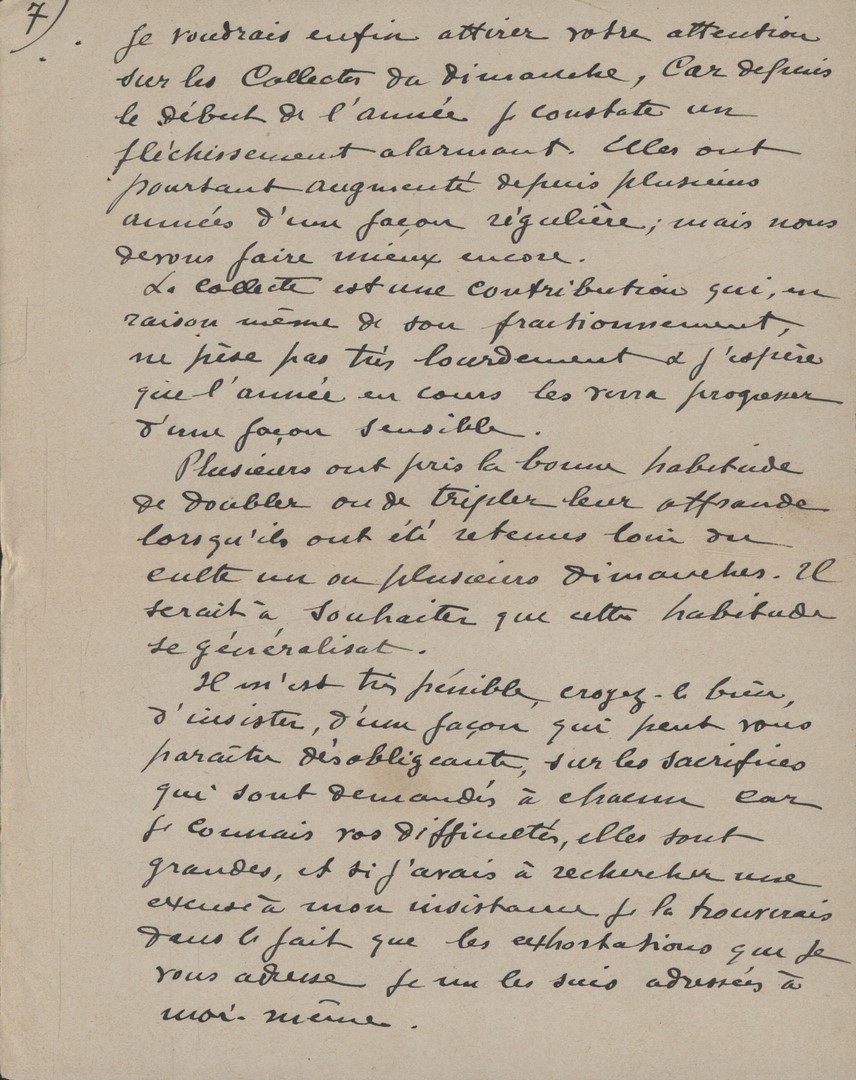 7)
Je voudrais enfin attirer votre attention
sur les Collectes du dimanche, Car depuis
le début de l'année je constate un
fléchissement alarmant. Elles ont
pourtant augmenté depuis plusieurs
années d'une façon régulière; mais nous
devons faire mieux encore.
La collecte est une contribution qui, en
raison même de son fractionnement,
ne pèse pas très lourdement & j'espère
que l'année en cours les verra progresser
d'une façon sensible.
Plusieurs ont pris la bonne habitude
de doubler ou de tripler leur offrande
lorsqu'ils ont été retenus loin du
culte un ou plusieurs dimanches. Il
serait à souhaiter que cette habitude
se généralisat.
Il m'est très pénible, croyez-le bien,
d'insister, d'une façon qui peut vous
paraître désobligeante, sur les sacrifices
qui sont demandés à chacun car
je connais vos difficultés, elles sont
grandes, et si j'avais à rechercher une
excuse à mon insistance je la trouverais
dans le fait que les exhortations que je
vous adresse je me les suis adressées à
moi-même.